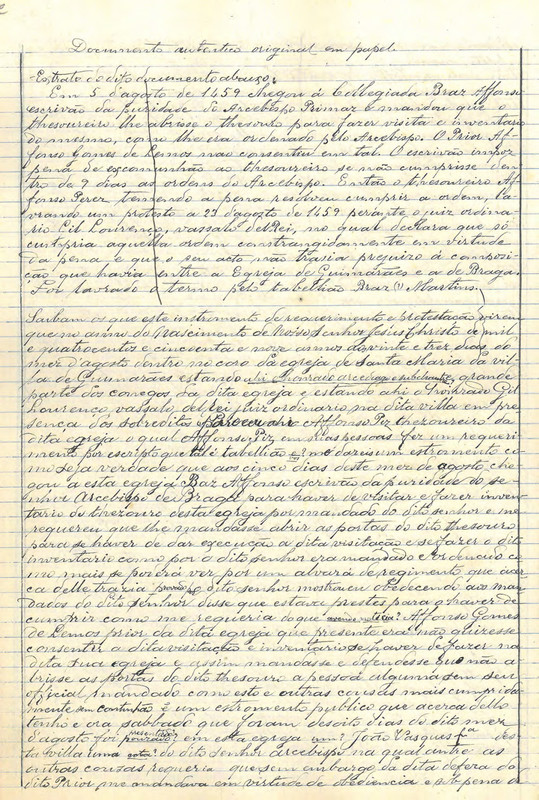 Documento autentico original em papel
Extrato do dito documento abaixo:
Em 5 d'agosto de 1459 chegou á Collegiada Braz Affonso
escrivão da puridade do Arcebispo Primaz e mandou que o
thesoureiro lhe abrisse o thesouro para fazer visita e inventario
do mesmo, como lhe era ordenado pelo Arcebispo. O Prior Af-
fonso Gomes de Lemos não consentiu em tal. O escrivão impoz
pena de excomunhão ao thesoureiro se não cumprisse den-
tro de 9 dias as ordens do Arcebispo. Então o thesoureiro Af-
fonso Perez temendo a pena resolveu cumprir a ordem, la-
vrando um protesto a 23 d'agosto de 1459 perante o juiz ordina-
rio Gil Lourenço, vassalo del Rei, no qual declara que só
cumpria aquella ordem constrangidamente em virtude
da pena e que o seu acto não trazia prejuizo á composi-
ção que havia entre a Egreja de Guimarães e a de Braga.
Foi lavrado o termo pelo tabellião Braz (?) Martins.
Saibam os que este instromento de requerimento e protestação virem
que no anno do Nascimento de Nosso Senhor Jesus Christo de mil
e quatrocentos e cincoenta e nove annos aos vinte e trez dias do
mez d'agosto dentro no coro da egreja de Santa Maria da vil-
la de Guimarães estando ahi o honrado arcediago e subchantre, grande
parte dos conegos da dita egreja e estando ahi o honrado Gil
Lourenço, vassalo del rei, juiz ordinario na dita villa em pre-
sença dos sobreditos pareceu ahi Affonso Piz thezoureiro da
dita egreja o qual Affonso Piz em suas pessoas fez um requeri-
mento por escripto que tal é tabellião e? me dareis um estromento co-
mo seja verdade que aos cinco dias deste mez de agosto che-
gou a esta egreja Braz Affonso escrivão da puridade do se-
nhor Arcebispo de Braga para haver de visitar e fazer inven-
tario do thezouro desta egreja por mandado do dito senhor e me
requereu que lhe mandasse abrir as portas do dito thesouro
para se haver de dar execução a dita visitação e se fazer o dito
inventario como por o dito senhor era mandado e ordenado co-
mo mais se poderá ver por um alvará de regimento que acer-
ca delle trazia o dito senhor mostrou e obedecendo aos man-
dados do dito senhor disse que estava prestes para o haver de
cumprir como me requeria do que Affonso Gomes
de Lemos prior da dita egreja que presente era não quizesse
consentir a dita visitação e inventario se haver de fazer na
dita sua egreja e assim mandasse e defendesse que não a-
brisse as portas do dito thesouro a pessoa alguma sem seu
official e mandado como esto e outras cousas mais cumprida-
mente sem contenda é um estromento publico que acerca dello
tenho e ora sabbado que foram dezoito dias do dito mez
d'agosto foi em esta egreja um? João Vasques des-
ta villa uma nota? do dito senhor arcebispo na qual antre as
outras cousas requeria que sem embargo da dita defeza do
dito Prior me mandava em virtude de obediencia e sob pena de